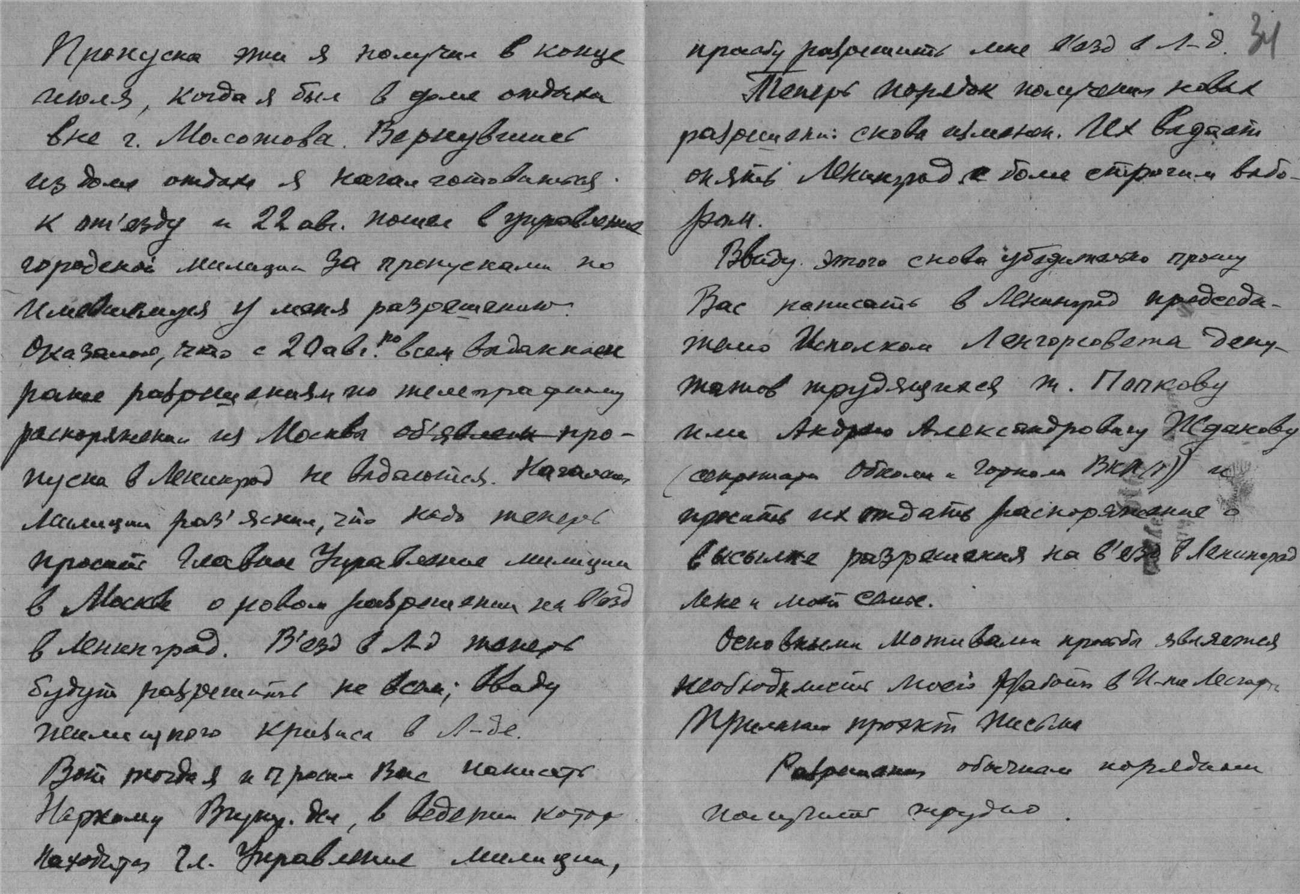 Пропуска эти я получил в конце
июля, когда я был в доме отдыха
вне г. Молотова. Вернувшись
из дома отдыха я начал готовиться
к от'езду и 22 авг. пошел в управление
городской милиции за пропусками по
имевшимся у меня разрешению.
Оказалось, что с 20 авг. по всем выданным
ранее разрешениям по телеграфному
распоряжению из Москвы об'явлен про-
пуска в Ленинград не выдаются. Начальник
милиции раз'яснил, что надо теперь
просить Главное Управление милиции
в Москве о новом разрешении на в'езд
в Ленинград. В'езд в Л-д теперь
будут разрешать не всем, ввиду
жилищного кризиса в Л-де.
Вот тогда я и просил Вас написать
Наркому Внутр. дел, в ведении котор.
находится Гл. Управление милиции,
34
просьбу разрешить мне в'езд в Л-д.
Теперь порядок получения новых
разрешений снова изменен. Их выдает
опять Ленинград с более строгим выбо-
ром.
Ввиду этого снова убедительно прошу
Вас написать в Ленинград председа-
телю Исполком Ленгорсовета депу-
татов трудящихся т. Попкову
или Андрею Александровичу Жданову
(секретарю Обкома и Горкома ВКП(б)) и
просить их отдать распоряжение о
высылке разрешения на в'езд в Ленинград
мне и моей семье.
Основными мотивами просьбы является
необходимость моей работы в
Прилагаю проект письма
Разрешения обычным порядком
получить трудно.